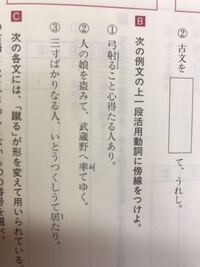 ② 古文を
て、うれし。
B 次の例文の上一段活用動詞に傍線をつけよ。
① 弓射ること心得たる人あり。
② 人の娘を盗みて、武蔵野へ率てゆく。
③ 三寸ばかりなる人、いとうつくしうて居たり。
C 次の各文には、「蹴る」が形を変えて用いられている。